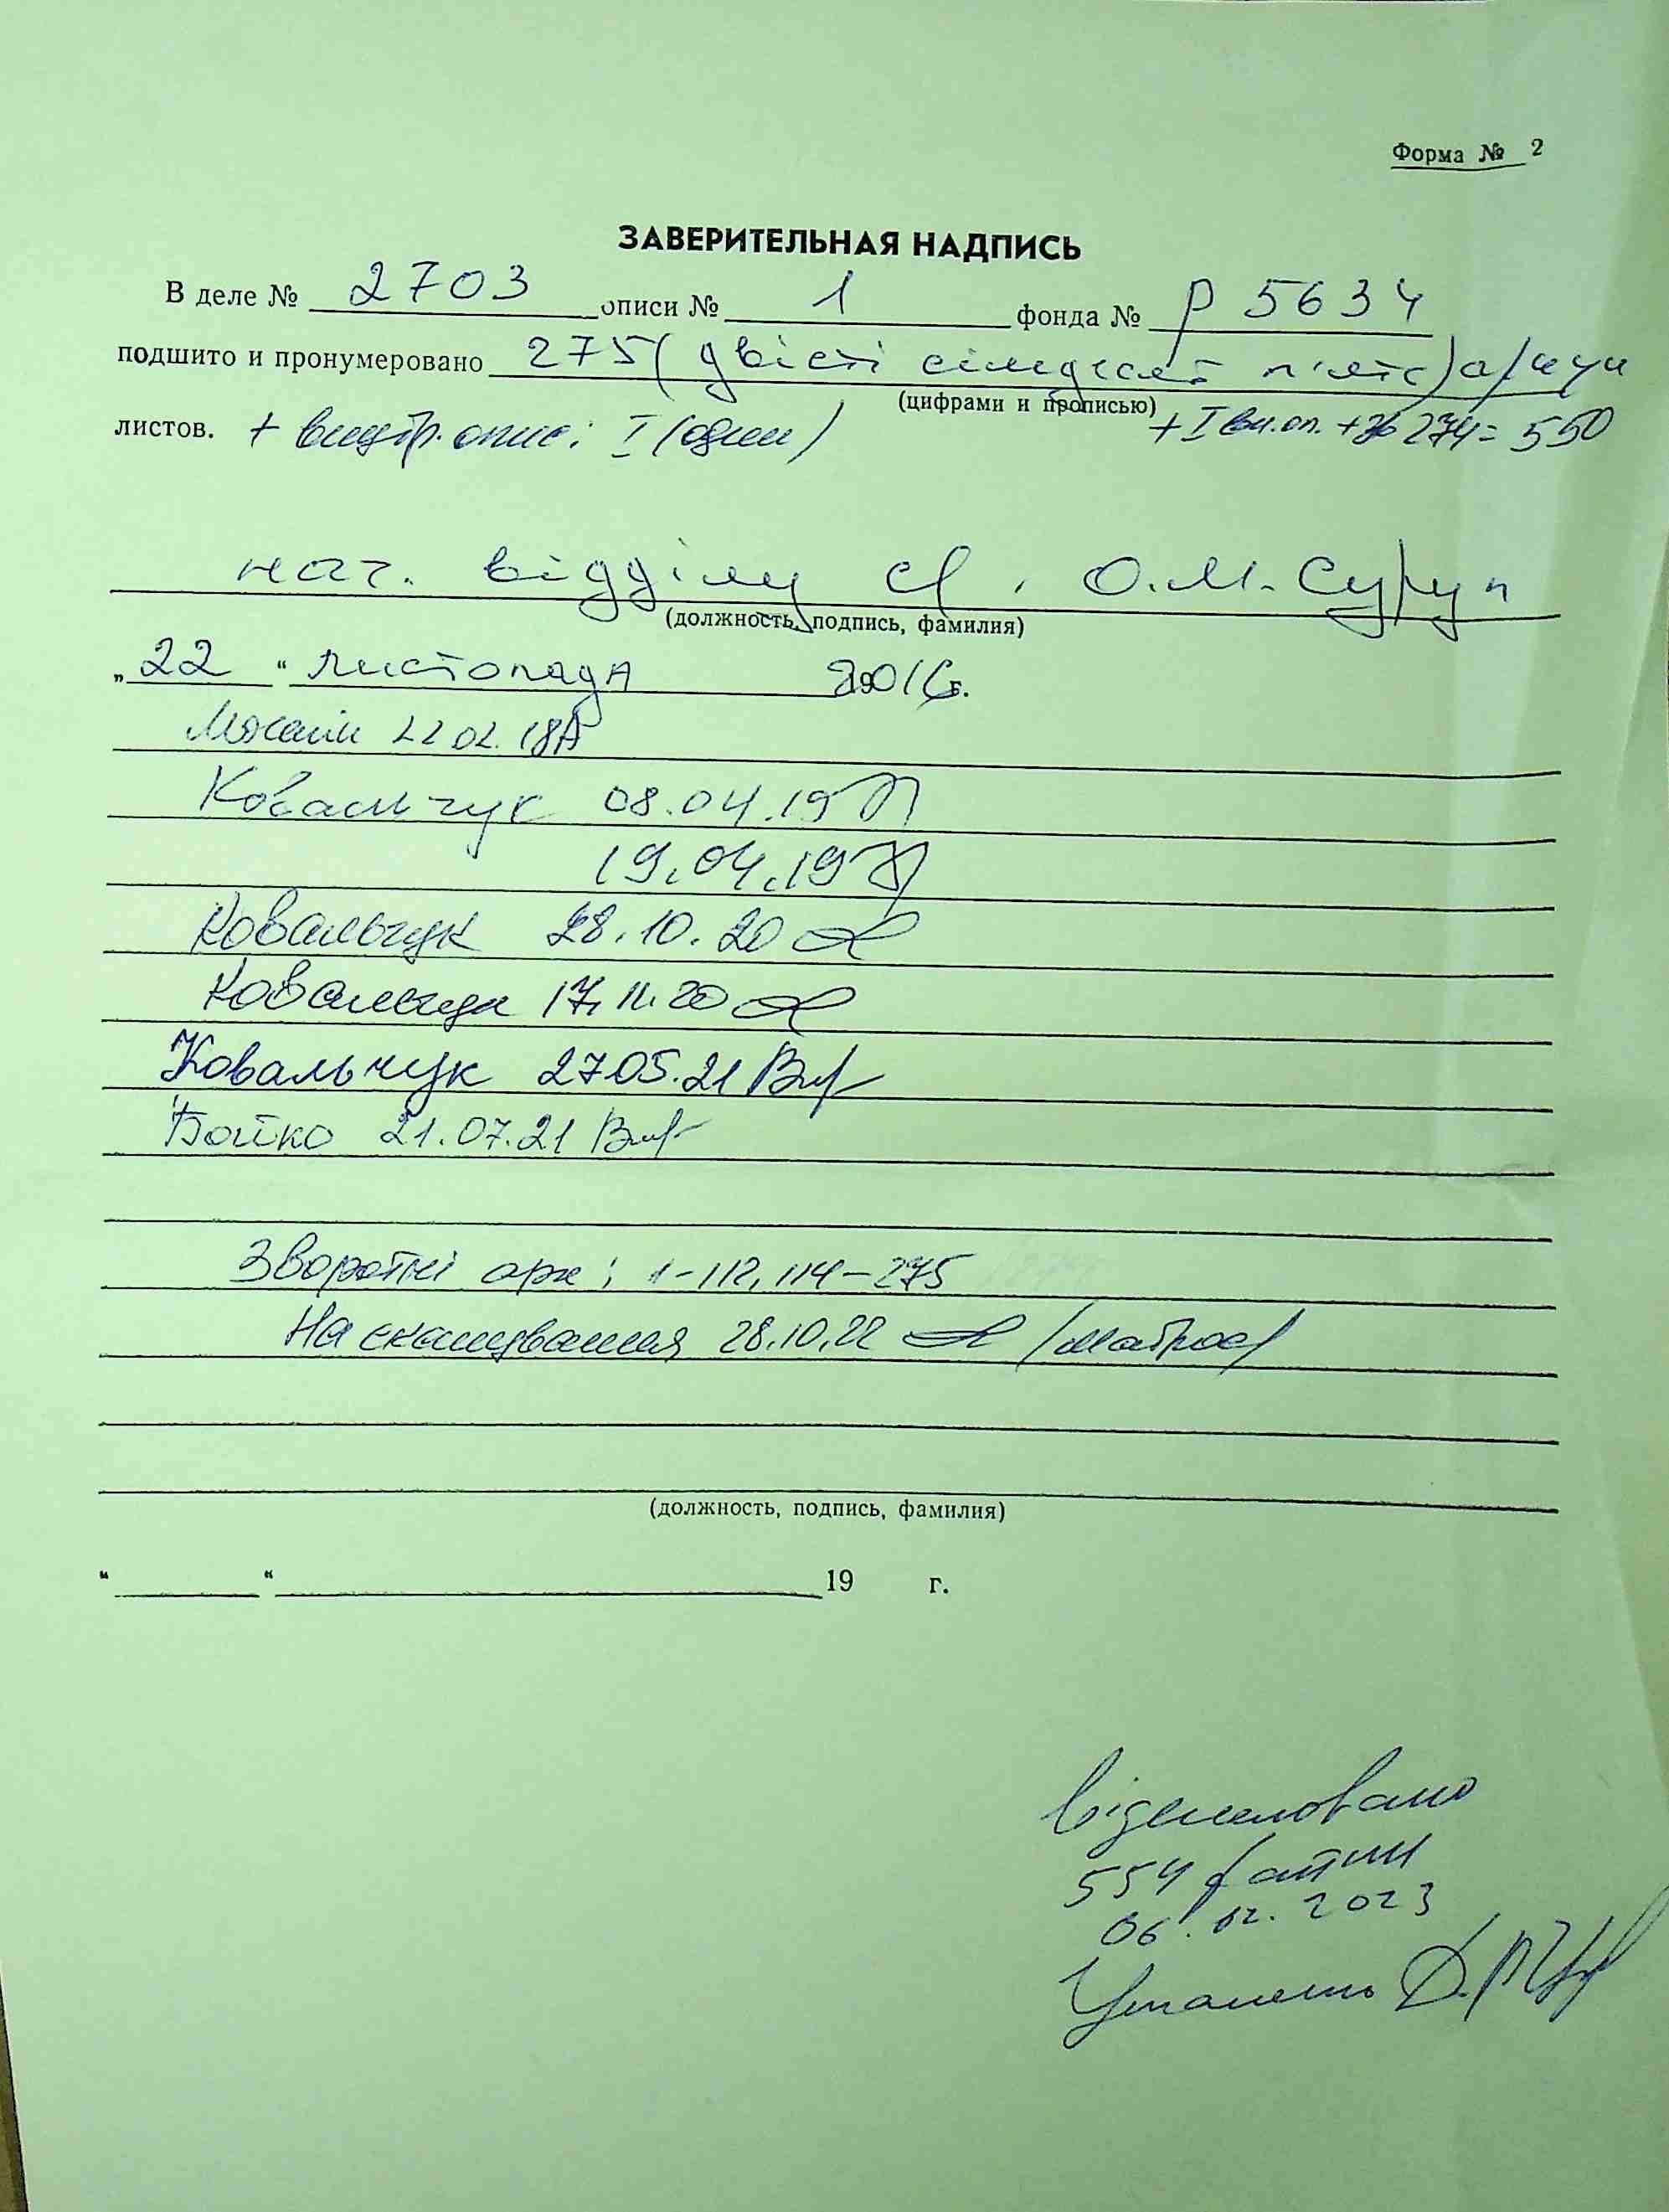 Форма № 2
ЗАВЕРИТЕЛЬНАЯ НАДПИСЬ
В деле № 2703 описи № 1 фонда № Р 5634
подшито и пронумеровано 275 (двісті сімдесят п'ять) аркуш
(цифрами и прописью)
листов. + внутр. опис: I (один) + I вн.оп. + зв 274 = 550
нач. відділу О.М.
(должность, подпись, фамилия)
„ 22 “ листопада 2016 г.
22.02.18
Ковальчук 08.04.19
19.04.19
Ковальчук 28.10.20
Ковальчук 17.11.20
Ковальчук 27.05.21
Бойко 21.07.21
Зворотні арк: 1-112, 114-275
На сканування 28.10.22
(должность, подпись, фамилия)
“ “ 19 г.
відскановано
554 файли
06.02.2023